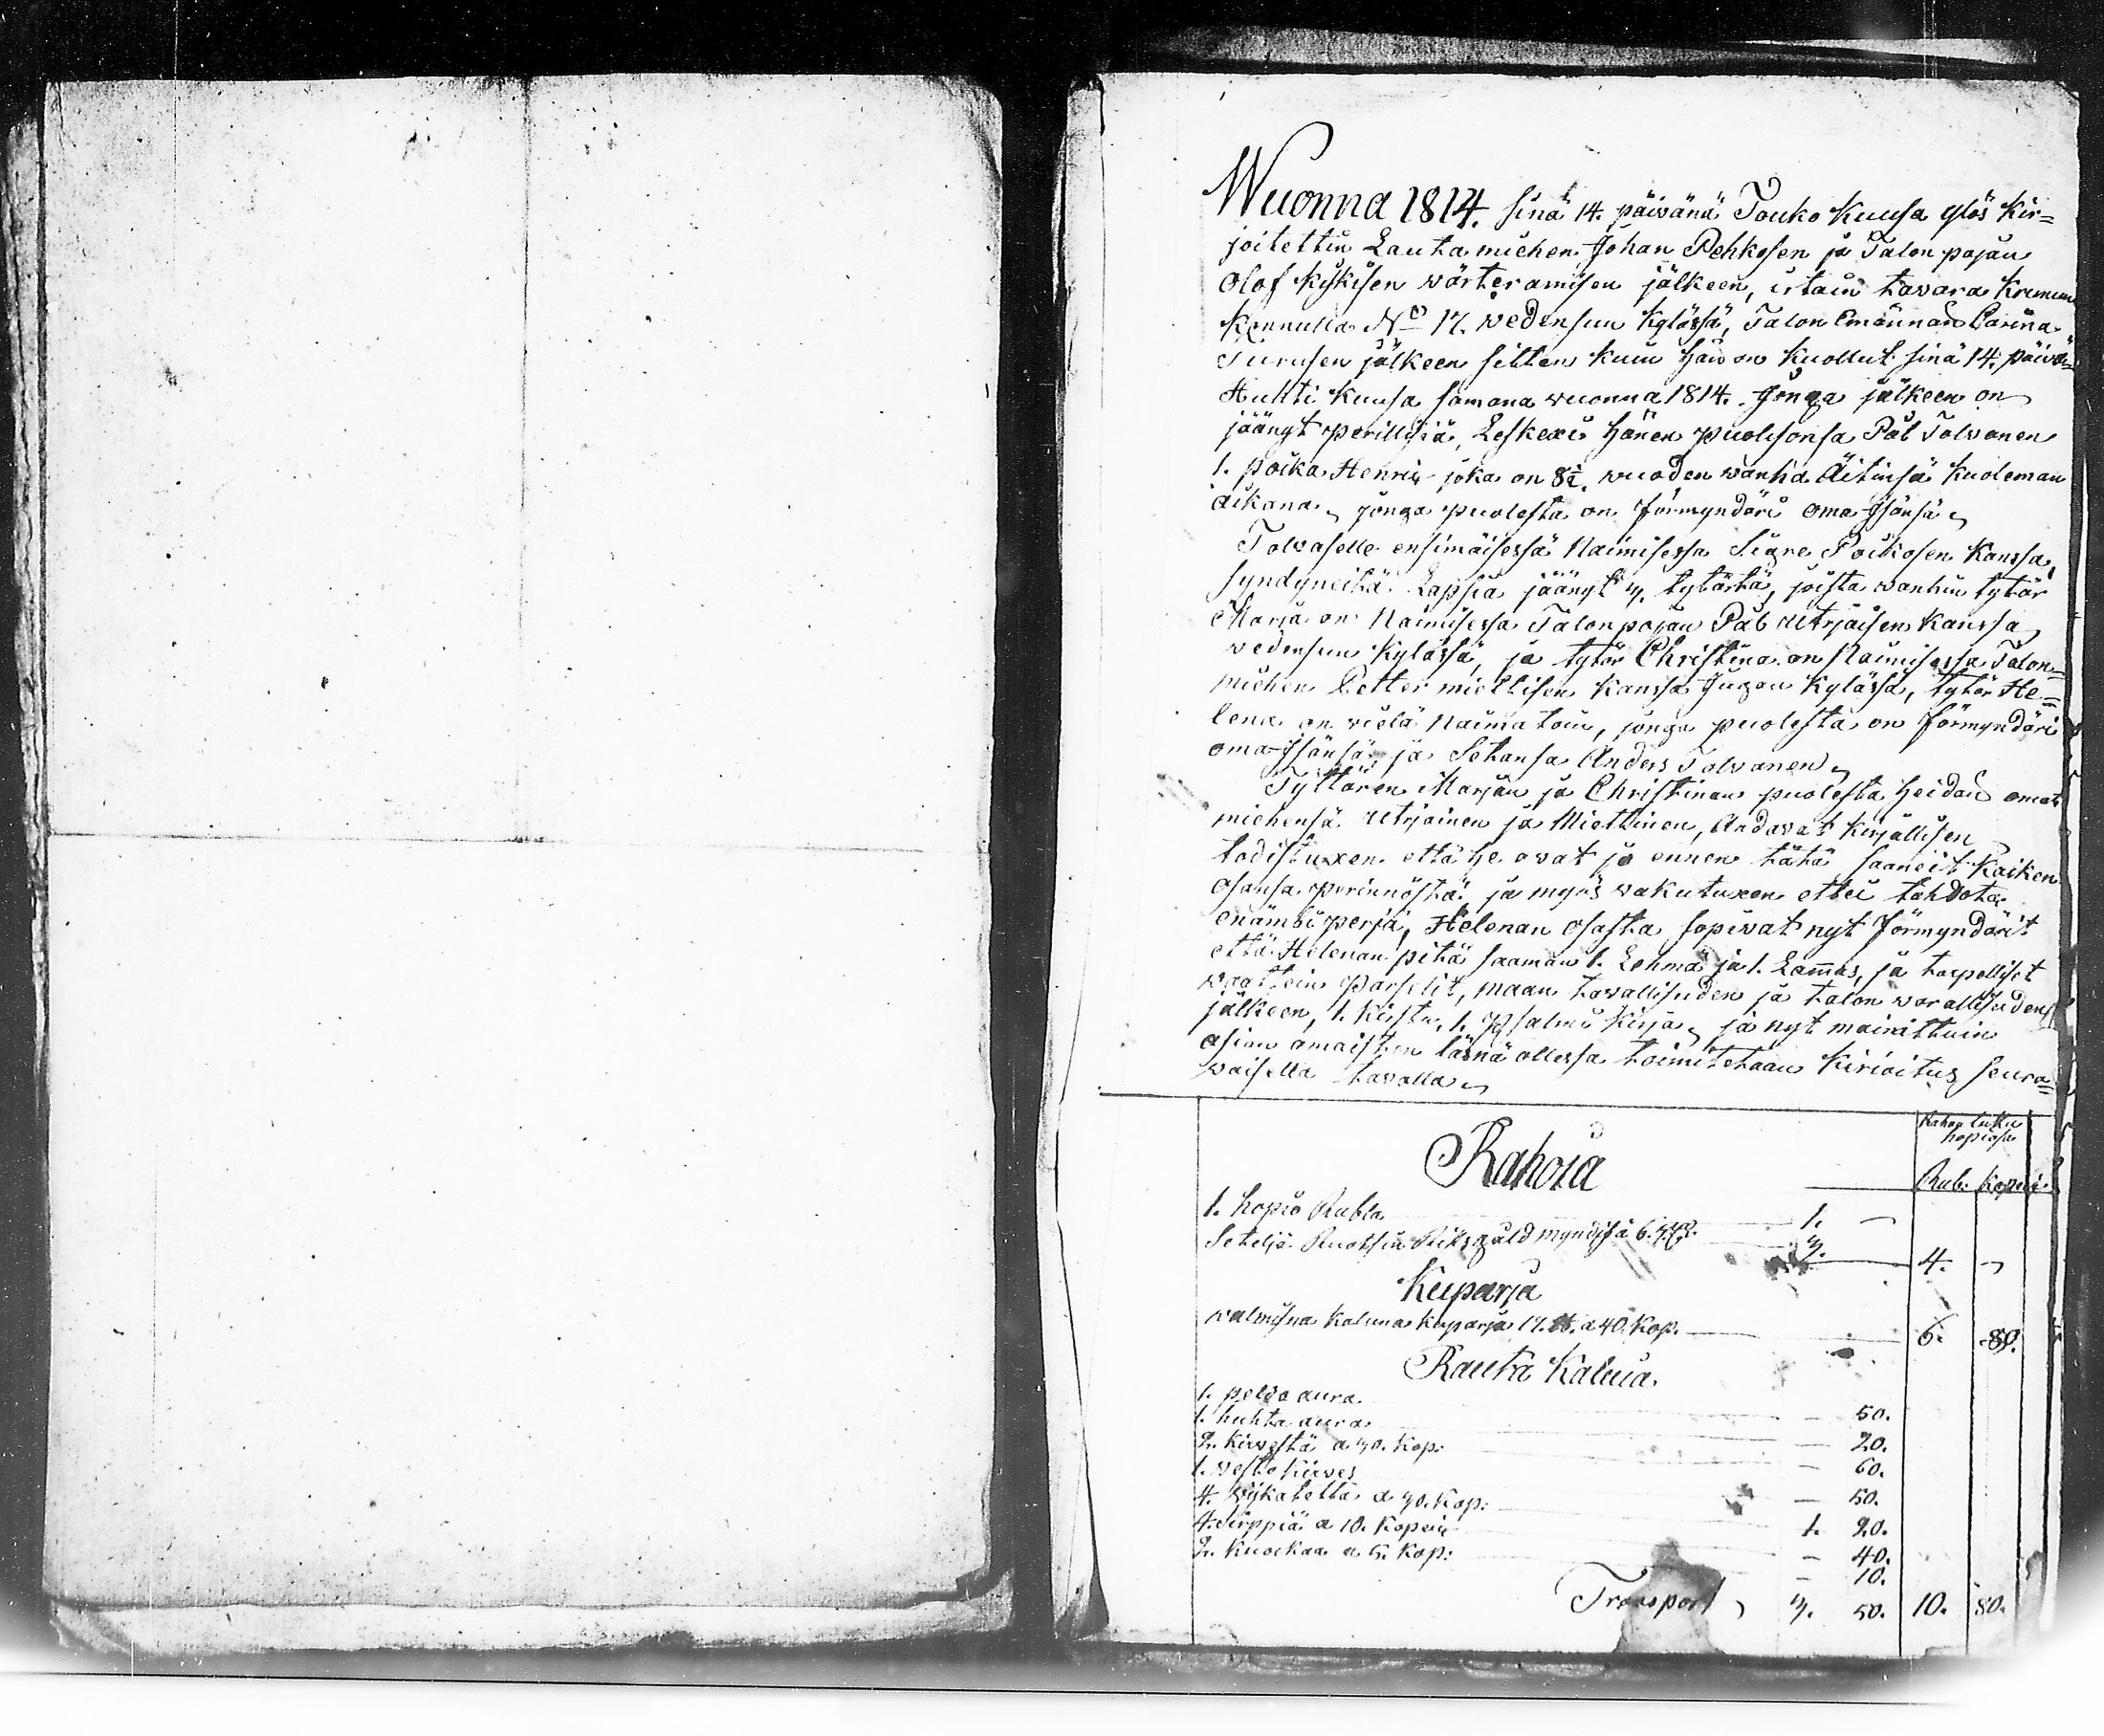 Wuonna 1814. sinä 14. päivänä Touko Kuusa ylös kir=
joitettin Lautamiehen Johan Pehkosen ja Talonpojan
Olof Kiskisen wärteramisen jälkeen, irtain tavara Krunun
Konnulla No 17. Wedensuun Kylässä, Talon Emännän Carina
Turusen jälkeen sitten kuin hän on Kuollut sinä 14. päivä=
Huhti Kuusa samana wuonna 1814. Jonga jälkeen on
jäänyt perillisiä, Leskexi hänen puolisonsa Pål Tolvanen
1. poika Henric joka on 8½. wuoden wanha Äitinsä Kuoleman
aikana, jonga puolesta on förmyndäri oma Isänsä,
Tolvaselle ensimäisessä Naimisessa Sigre Poikosen Kanssa,
syndyneitä Lapsia jäänyt 3. tytärtä, joista wanhin tytär
Maria on Naimisessa Talonpojan Pål Utrjaisen Kanssa
wedensuun Kylässä, ja tytär Christina on Naimisessa Talon=
miehen Petter miettisen Kanssa Jugan Kylässä, tytär He=
lena on vielä Naimatoin, jonga puolesta on förmyndäri
oma Isänsä, ja Setänsä Anders Tolvanen,
Tyttären Marjan ja Christinan puolesta heidän omat
miehensä Utrjainen ja Miettinen, Andavat Kirjallisen
todistuxen että he ovat jo ennen tätä saaneet Kaiken
osansa perinnöstä ja myös wakutuxen ettei tahdota
enämbi perjä, Helenan osasta sopivat nyt förmyndärit
että Helenan pitä saaman 1. Lehmä ja 1. Lammas, ja tarpelliset
waattein parselit, maan tavallisuden ja talon warallisuden
jälkeen, 1. Kirstu, 1. Psalmi Kirja, ja nyt mainittuin
asian omaisten läsnä ollessa toimitetaan Kirioitus seura=
waisella tavalla,
Rahan luku
hopiosa
Rahoia
Rub. Kopeic
1. hopio Rubla 1. —
Seteljä Ruotsin Riksgäld myndisä 6. 3. 4. —
Kuparja
walmisna Kaluna kuparja 17. ℔. a 40. Kop. 6. 80.
Rauta Kaluia
1. peldo aura — 50.
1. huhta aura — 20.
2. Kirvestä a 30. Kop: — 60.
1. westo Kirves — 50.
4. Wijkatetta a 30. Kop: 1. 20.
4. Sirppiä a 10. Kopeic — 40.
2. Kuokaa a 5. Kop: — 10.
Transport, 3. 50. 10. 80.